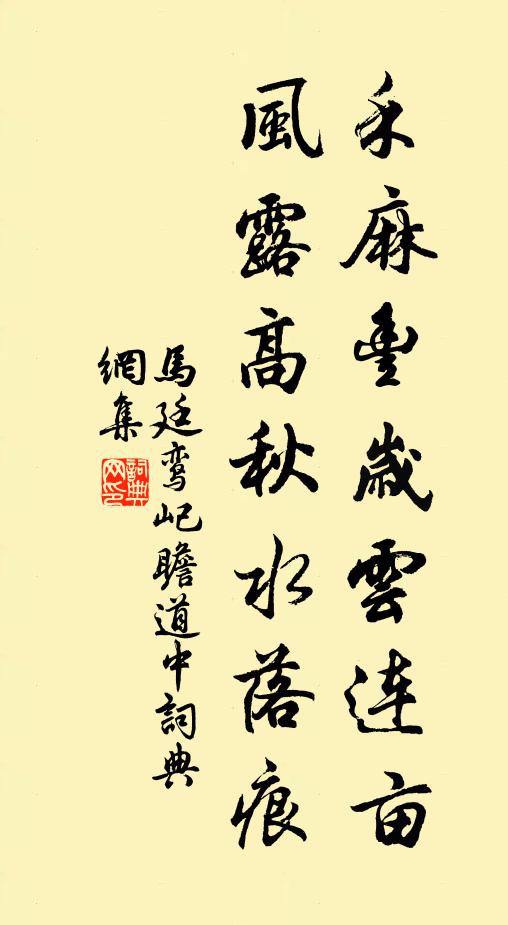 禾麻豊歲雲連亩
風露高秋水落痕
馬廷鸾屺瞻道中詞典
網集
詞典
网印